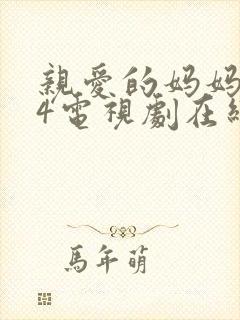 親愛的妈妈
4電視劇在線
馬年萌